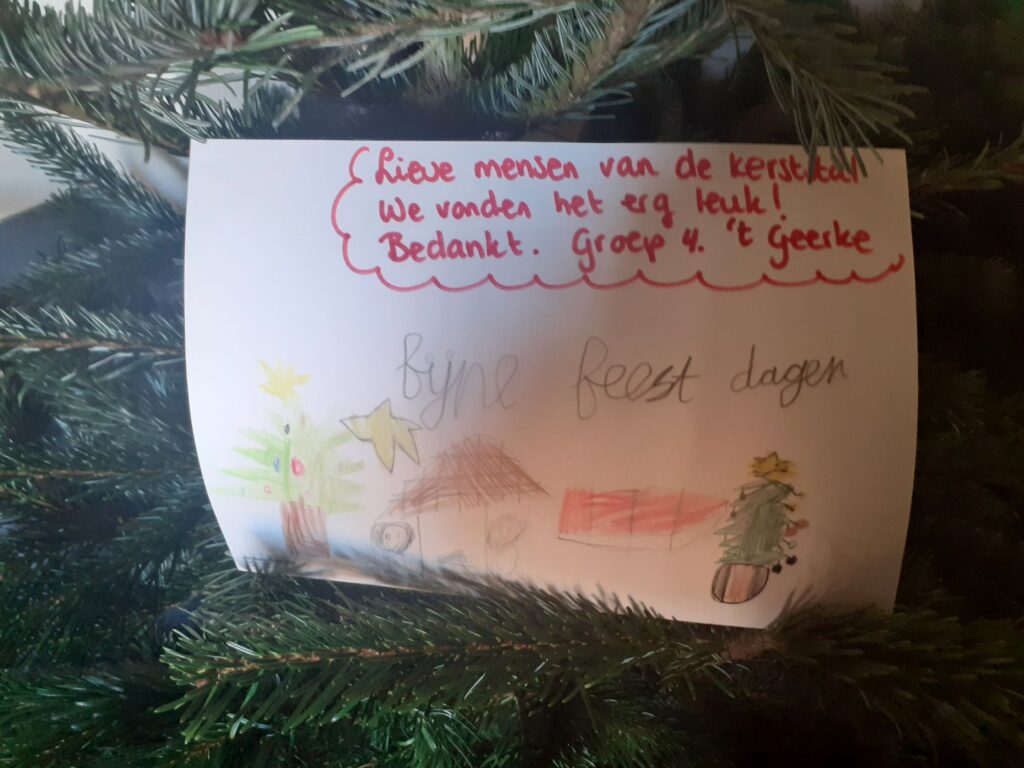 Lieve mensen van de kerststal
We vonden het erg leuk!
Bedankt. Groep 4. 't Geerke
fijne feest dagen